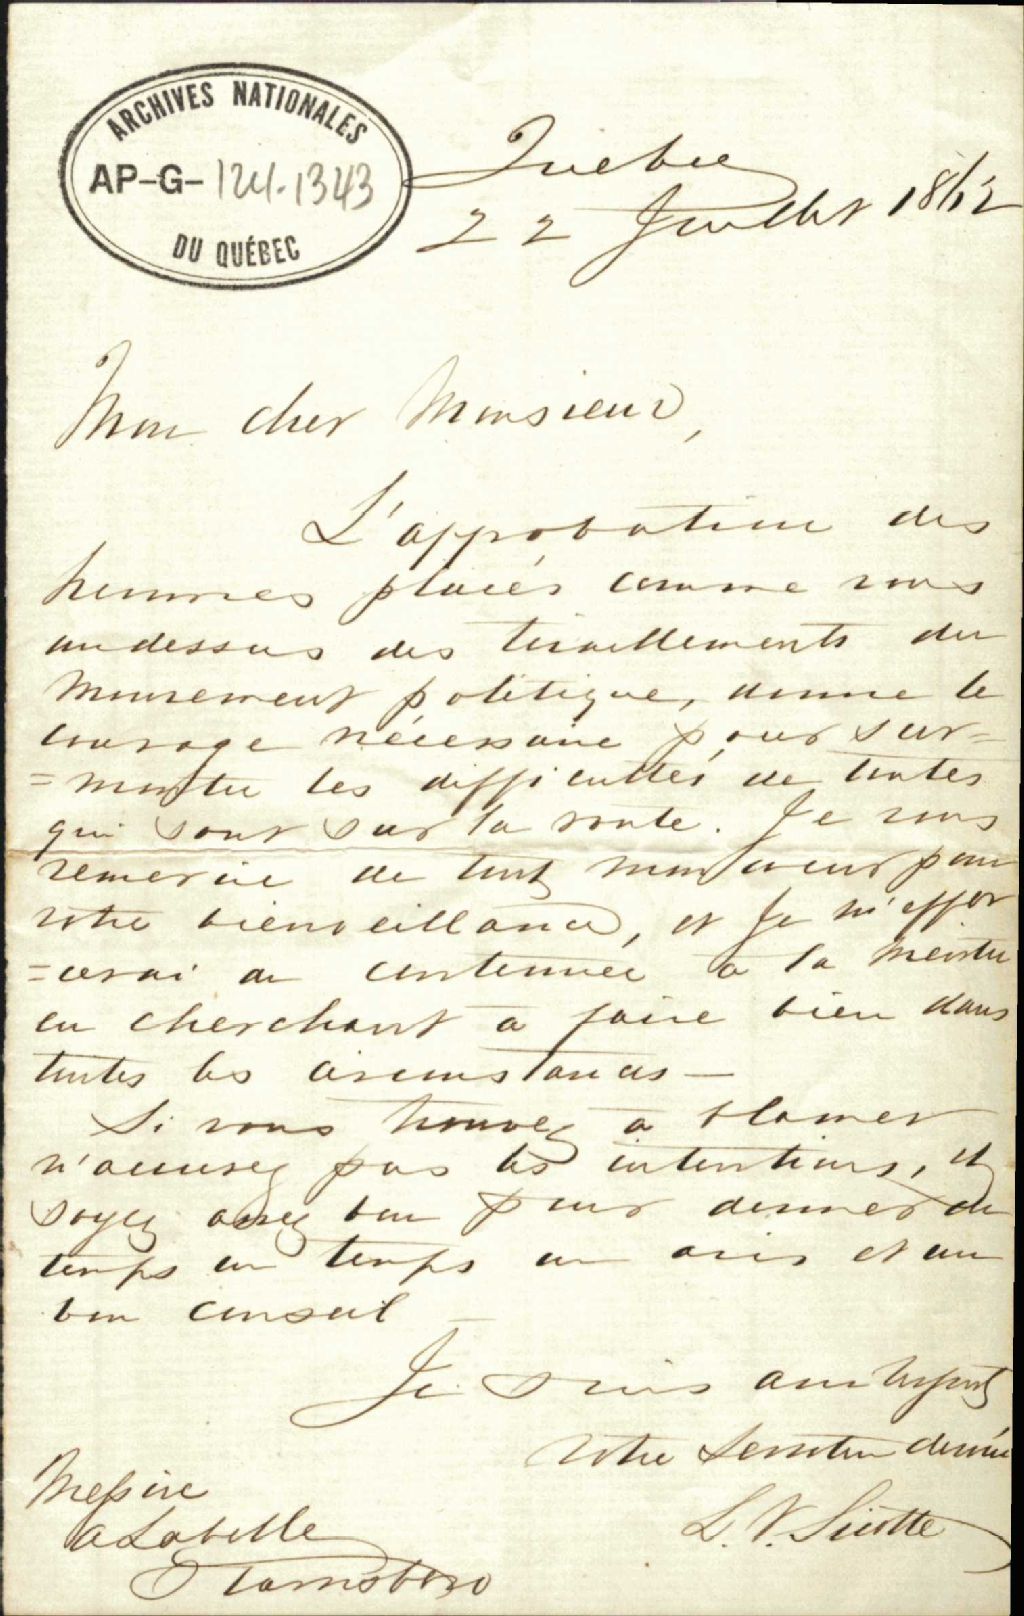 ARCHIVES NATIONALES
AP-G-124.1343
DU QUÉBEC
Québec
22 Juillet 1862
Mon cher Monsieur,
L'approbation des
hommes placés comme vous
au dessus des tiraillements du
mouvement politique, donne le
courage nécessaire pour sur=
=monter les difficultés de toutes
qui sont sur la route. Je vous
remercie de tout mon coeur pour
votre bienveillance, et Je m'effor
=cerai de continuer à la mériter
en cherchant a faire bien dans
toutes les circonstances —
Si vous trouvez a blamer
n'accusez pas les intentions, et
soyez assez bon pour donner de
temps en temps un avis et un
bon conseil —
Je suis avec respect
votre serviteur dévoué
L. V. Sicotte
Messire
A Labelle